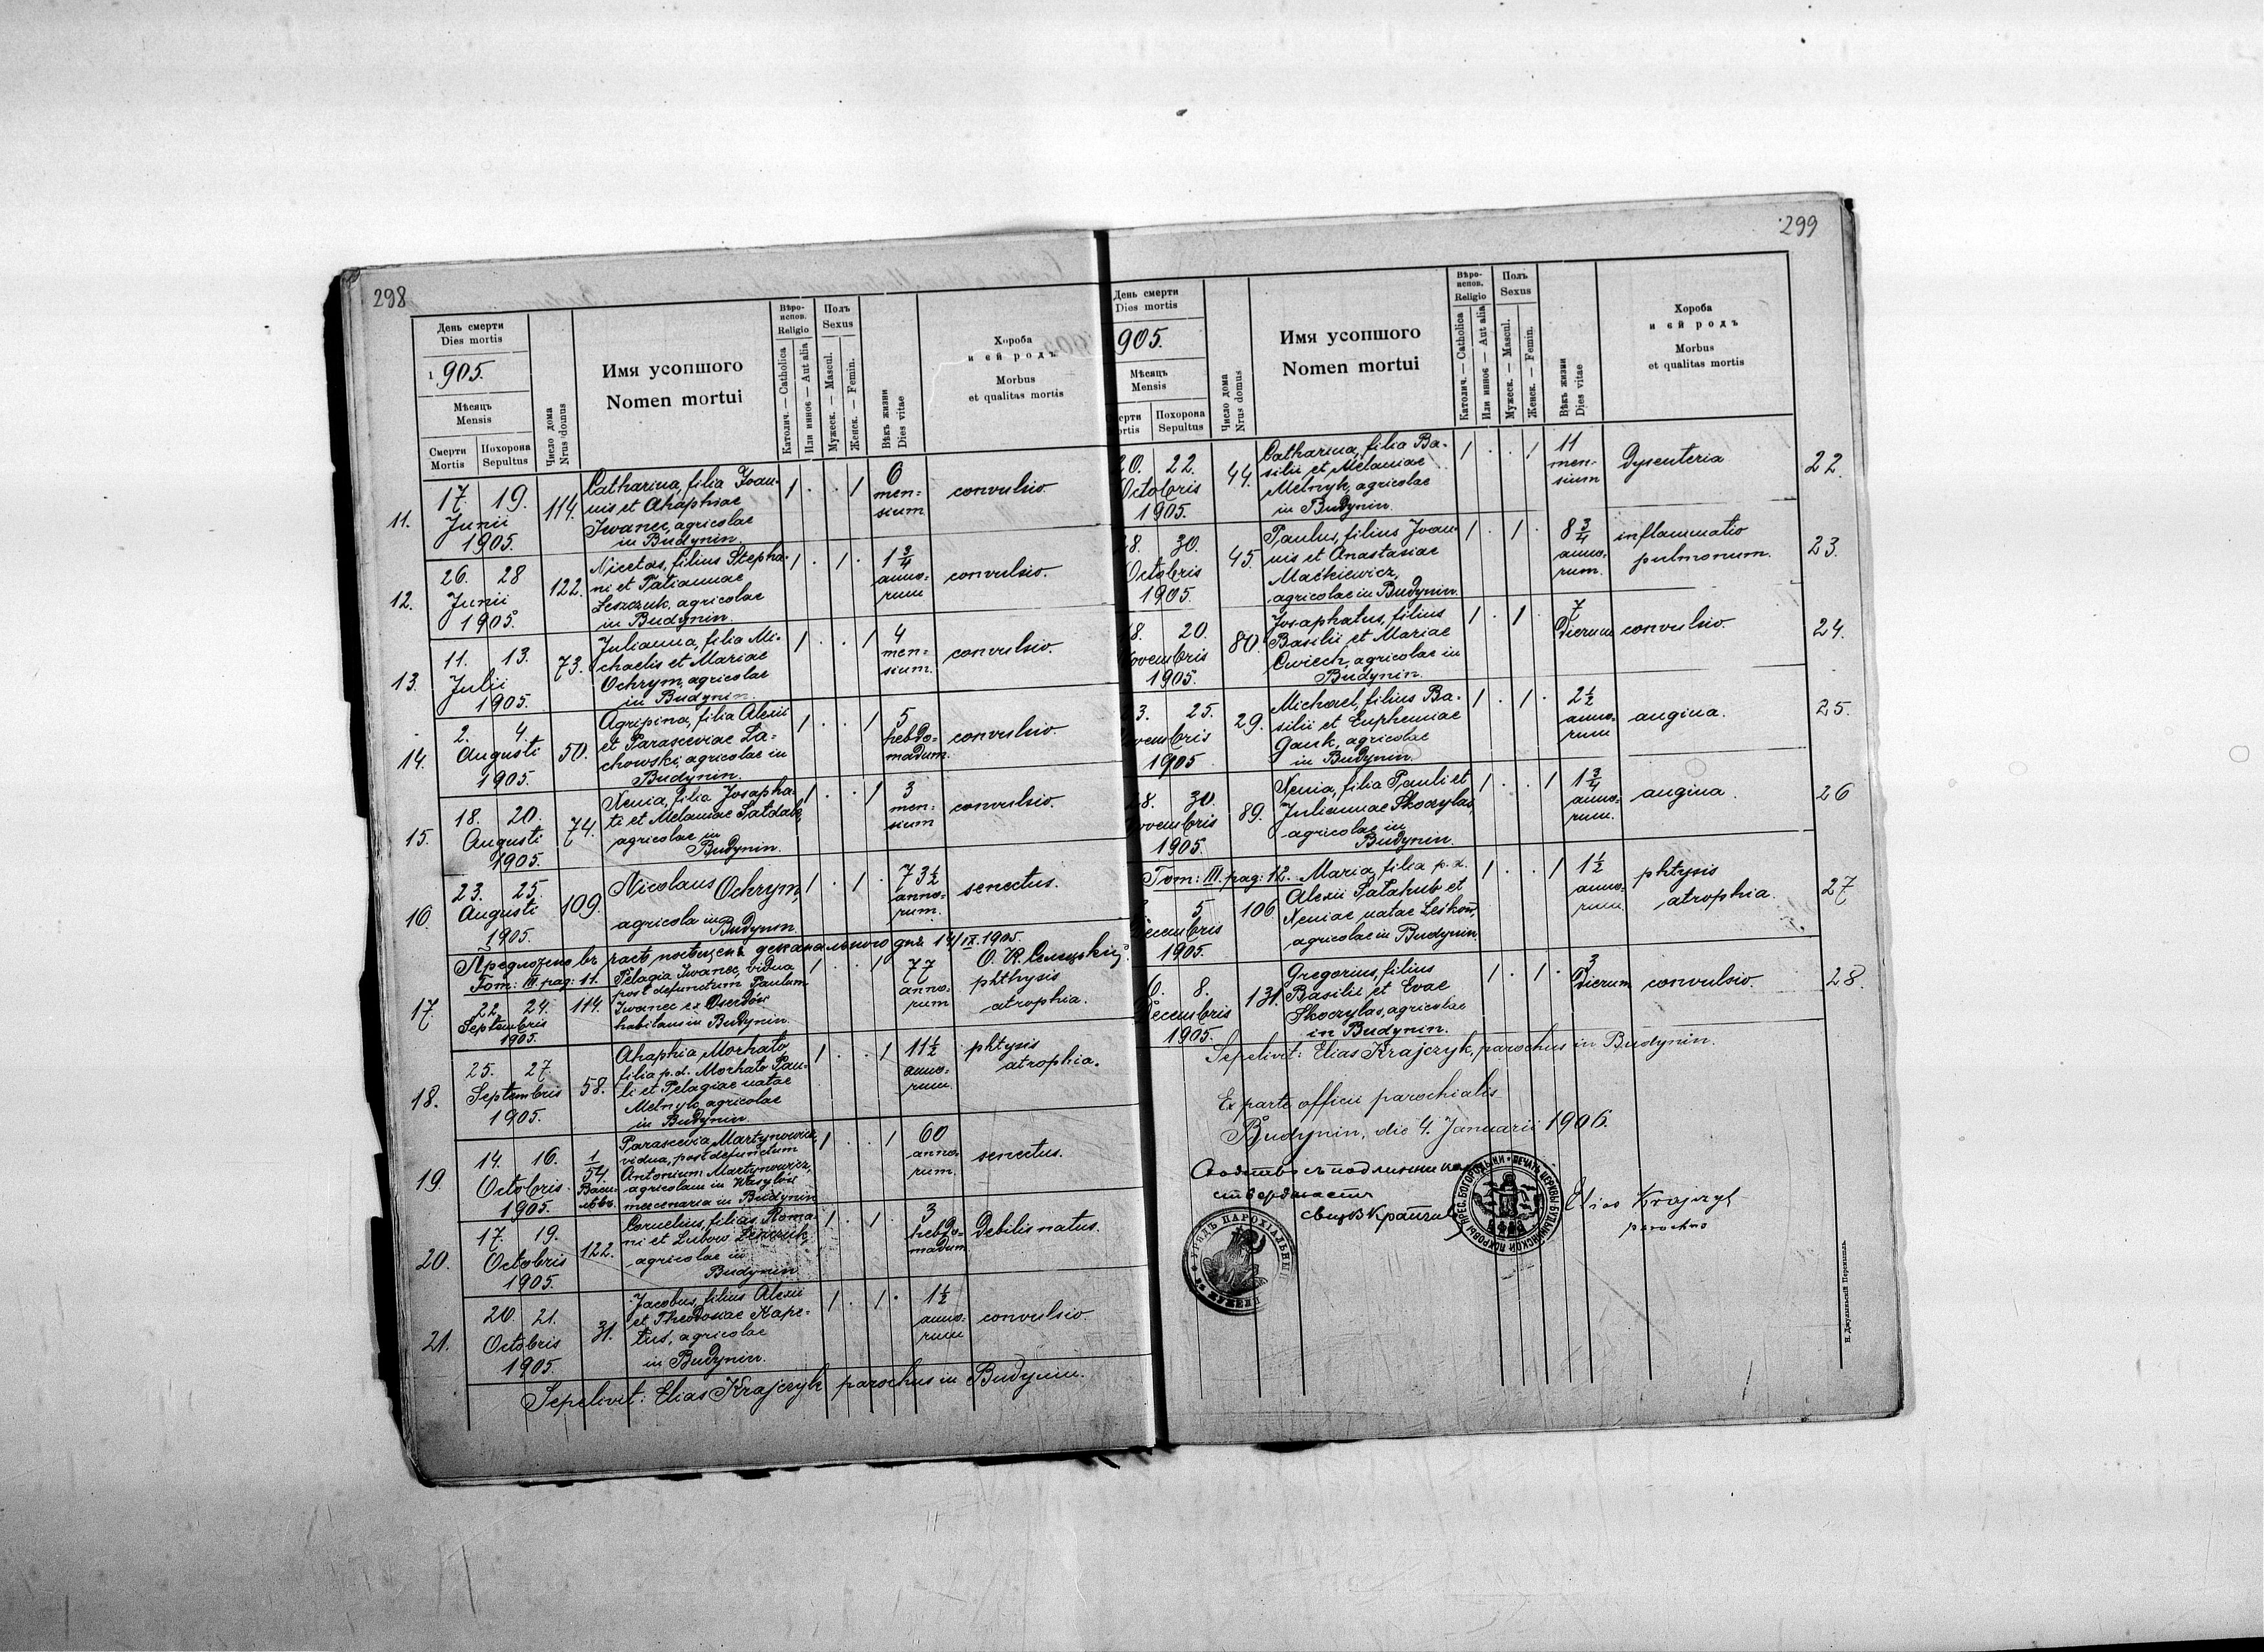 298
День смерти
Dies mortis
1905.
Мѣсяць
Mensis
Смерти
Mortis
Похорона
Sepultus
Число дома
Nrus domus
Имя усопшого
Nomen mortui
Вѣро-
испов.
Religio
Католич. — Catholica
Или инное — Aut alia
Полъ
Sexus
Мужеск. — Mascul.
Женск. — Femin.
Вѣкъ жизни
Dies vitae
Хороба
и ей родъ
Morbus
et qualitas mortis
11.
17. 19.
Junii
1905.
114.
Catharina, filia Joan-
nis et Ahaphiae
Iwanec, agricolae
in Budynin.
1 . . 1
6
men=
sium
convulsio.
12.
26. 28
Junii
1905.
122.
Nicetas, filius Stepha-
ni et Tatiannae
Leszczuk, agricolae
in Budynin.
1 . 1 .
1 3/4
anno=
rum
convulsio.
13.
11. 13.
Julii
1905.
73.
Julianna, filia Mi-
chaelis et Mariae
Ochrym, agricolae
in Budynin.
1 . . 1
4
men=
sium.
convulsio.
14.
2. 4.
Augusti
1905.
50.
Agripina, filia Alexii
et Parasceviae La=
chowski, agricolae in
Budynin.
1 . . 1
5
hebdo=
madum.
convulsio.
15.
18. 20.
Augusti
1905.
74.
Xenia, filia Josapha-
ti et Melaniae
agricolae in
Budynin.
1 . . 1
3
men=
sium
convulsio.
16.
23. 25.
Augusti
1905.
109.
Nicolaus Ochrym,
agricola in Budynin.
1 . 1 .
73 1/2
anno=
rum.
senectus.
деканального дня 14/IX. 1905.
Tom: III. pag: 11.
17.
22. 24.
Septembris
1905.
114.
Pelagia Iwanec, vidua
post defunctum Paulum
Iwanec ex Oserdów
habitans in Budynin.
1 . . 1
77
anno=
rum
phthysis
atrophia.
18.
25. 27.
Septembris
1905.
58.
Ahaphia Morhato
filia p. d. Morhato Pau-
li et Pelagiae natae
Melnyk, agricolae
in Budynin.
1 . . 1
11 1/2
anno=
rum.
phtysis
atrophia.
19.
14. 16.
Octobris
1905.
1
54.
Parascevia Martynowicz,
vidua, post defunctum
Antonium Martynowicz,
agricolam in Wasylów
mercenaria in Budynin
1 . . 1
60
anno=
rum.
senectus.
20.
17. 19.
Octobris
1905.
122.
Cornelius, filius Roma-
ni et Lubow Leszczuk,
agricolae in
Budynin
1 . 1 .
3
hebdo=
madum
Debilis natus.
21.
20. 21.
Octobris
1905.
31.
Jacobus, filius Alexii
et Theodosiae Kape=
tus, agricolae
in Budynin.
1 . 1 .
1 1/2
anno=
rum
convulsio.
Sepelivit: Elias Krajczyk parochus in Budynin.
299
День смерти
Dies mortis
905.
Мѣсяць
Mensis
ерти
ortis
Похорона
Sepultus
Число дома
Nrus domus
Имя усопшого
Nomen mortui
Вѣро-
испов.
Religio
Католич. — Catholica
Или инное — Aut alia
Полъ
Sexus
Мужеск. — Mascul.
Женск. — Femin.
Вѣкъ жизни
Dies vitae
Хороба
и ей родъ
Morbus
et qualitas mortis
20. 22.
Octobris
1905.
44.
Catharina, filia Ba-
silii et Melaniae
Melnyk, agricolae
in Budynin.
1 . . 1
11
men=
sium
Dysenteria
22.
28. 30.
Octobris
1905.
45.
Paulus, filius Joan-
nis et Anastasiae
Maćkiewicz,
agricolae in Budynin.
1 . 1 .
8 3/4
anno=
rum.
inflammatio
pulmonum.
23.
18. 20.
ovembris
1905.
80.
Josaphatus, filius
Basilii et Mariae
Cwiech, agricolae in
Budynin.
1 . 1 .
7
Dierum
convulsio.
24.
3. 25.
ovembris
1905
29.
Michael, filius Ba-
silii et Euphemiae
Gauk, agricolae
in Budynin.
1 . 1 .
2 1/2
anno=
rum
angina.
25.
28. 30.
ovembris
1905.
89.
Xenia, filia Pauli et
Juliannae Skoczylas,
agricolae in
Budynin.
1 . . 1
1 3/4
anno=
rum.
angina.
26
Tom: III. pag: 12.
5.
ecembris
1905.
106.
Maria, filia p. d.
Alexii Satahub et
Xeniae natae Leśkow,
agricolae in Budynin
1 . . 1
1 1/2
anno=
rum.
phtysis
atrophia.
27
6. 8.
Decembris
1905.
131.
Gregorius, filius
Basilii et Evae
Skoczylas, agricolae
in Budynin.
1 . 1 .
3
Dierum
convulsio.
28.
Sepelivit: Elias Krajczyk, parochus in Budynin.
Ex parte officii parochialis
Budynin, die 4. Januarii 1906.
Elias Krajczyk
parochus
Н. Джулыньскій Перемышль